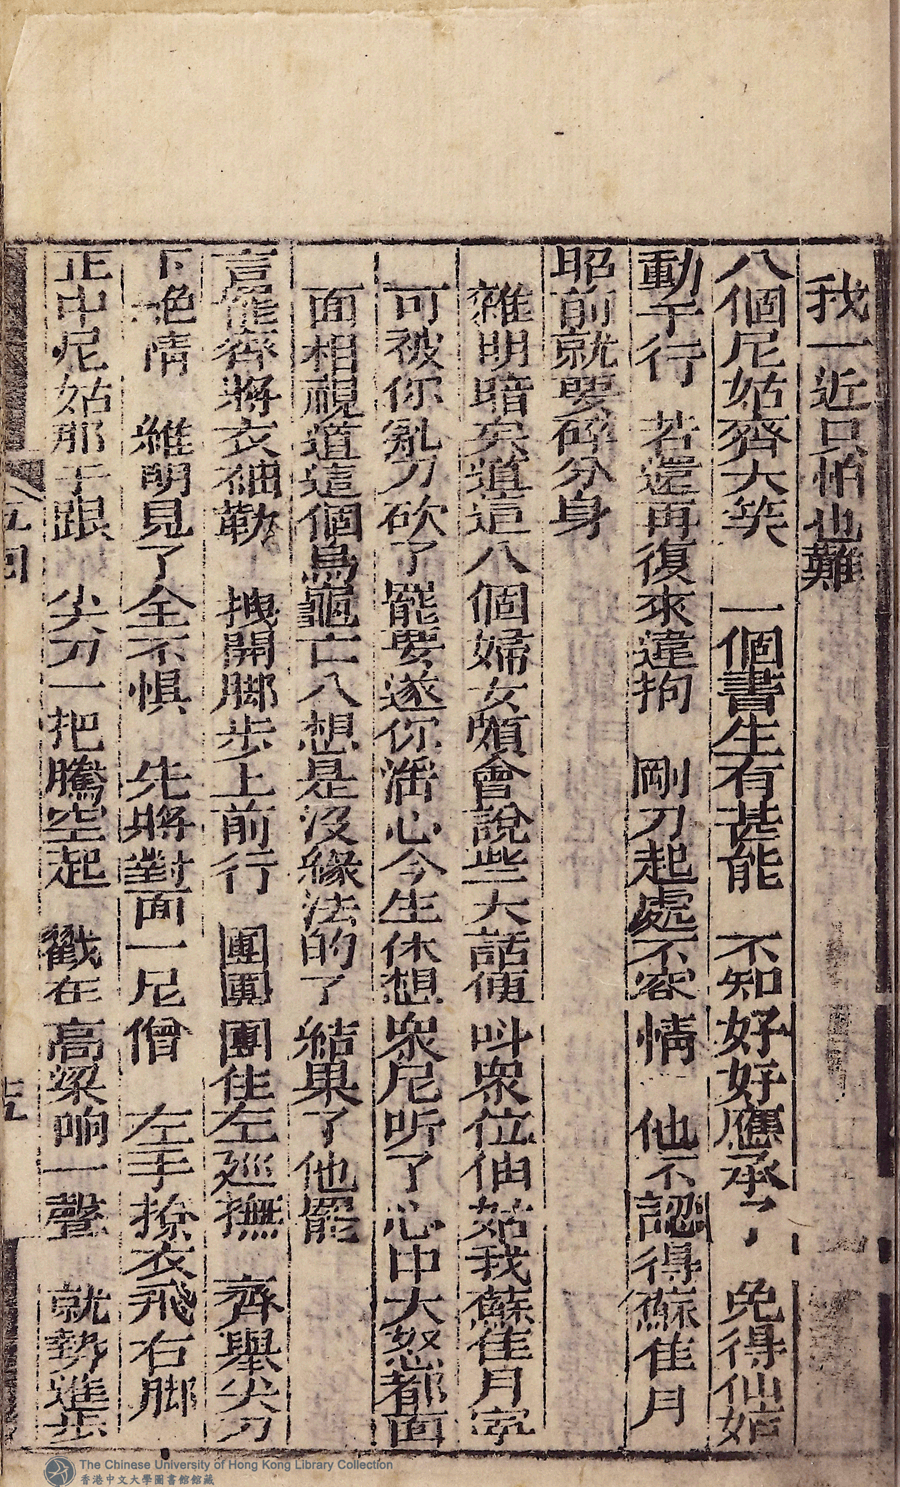 我一近只怕也難
八個尼姑齊大笑　一個書生有甚能　不知好好應承了　免得仙姑
動于行　若還再復來違拘　剛刀起處不容情　他不認得蘇隹月
昭前就要碎分身
雜明暗矣道這八個婦女頗會說些大話便叫衆位仙姑我蘇隹月寜
可被你亂刀砍了罷要遂你滛心今生休想衆尼听了心中大怒都面
面相視道這個烏龜亡八想是沒緣法的了結果了他罷
言罷齊將衣袖勒　拽開脚步上前行　團團團住左廵撫　齊舉尖刀
下絶情　維明見了全不惧　先將對面一尼僧　左手撩衣飛右脚
正中尼姑那手跟　尖刀一把騰空起　戳在高梁响一聲　就勢進步
五回
十五
The Chinese University of Hong Kong Library Collection
香港中文大學圖書館館藏